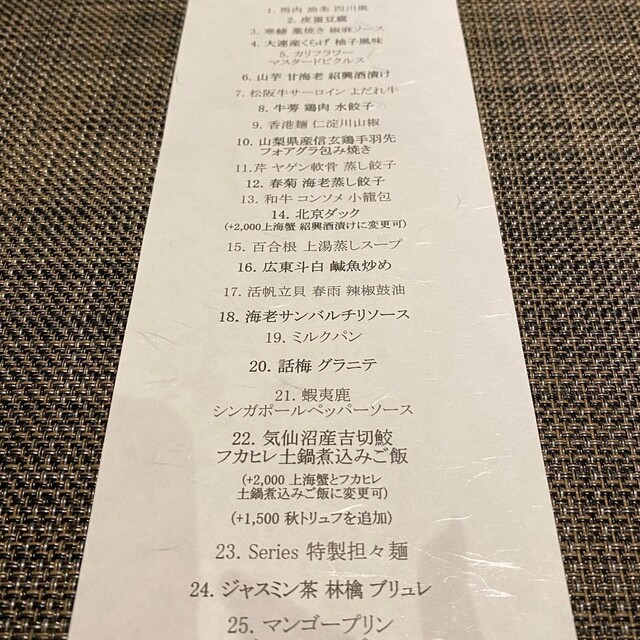 1. 馬肉 油条 四川風
2. 皮蛋豆腐
3. 寒鰆 藁焼き 椒麻ソース
4. 大連産くらげ 柚子風味
5. カリフラワー
マスタードピクルス
6. 山芋 甘海老 紹興酒漬け
7. 松阪牛サーロイン よだれ牛
8. 牛蒡 鶏肉 水餃子
9. 香港麺 仁淀川山椒
10. 山梨県産信玄鶏手羽先
フォアグラ包み焼き
11. 芹 ヤゲン軟骨 蒸し餃子
12. 春菊 海老蒸し餃子
13. 和牛 コンソメ 小籠包
14. 北京ダック
(+2,000上海蟹 紹興酒漬けに変更可)
15. 百合根 上湯蒸しスープ
16. 広東斗白 鹹魚炒め
17. 活帆立貝 春雨 辣椒鼓油
18. 海老サンバルチリソース
19. ミルクパン
20. 話梅 グラニテ
21. 蝦夷鹿
シンガポールペッパーソース
22. 気仙沼産吉切鮫
フカヒレ土鍋煮込みご飯
(+2,000 上海蟹とフカヒレ
土鍋煮込みご飯に変更可)
(+1,500 秋トリュフを追加)
23. Series 特製担々麺
24. ジャスミン茶 林檎 ブリュレ
25. マンゴープリン